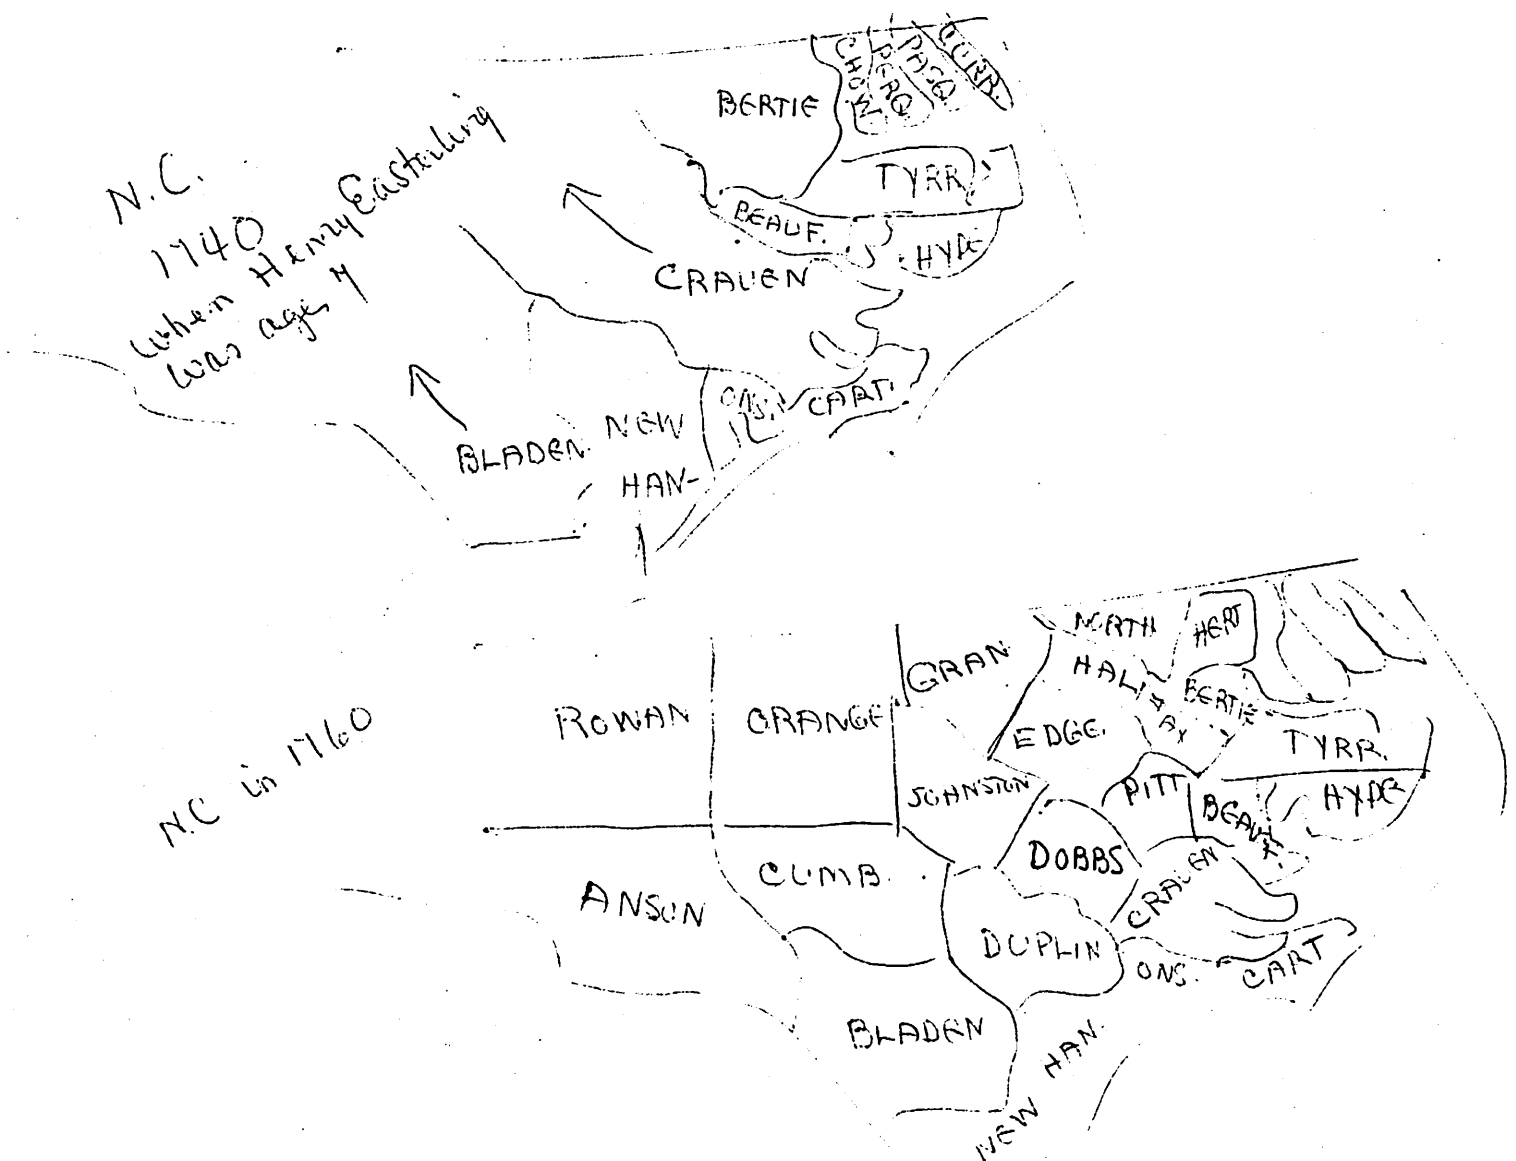 N.C.
1740
when Henry Easterling
was age 7
BERTIE
CHOW
PERQ
PASQ
CURR.
TYRR
BEAUF.
HYDE
CRAVEN
ONS.
CART.
NEW
HAN-
BLADEN
N.C in 1760
ROWAN
ORANGE
GRAN
NORTH
HERT
HALIFAX
BERTIE
EDGE.
TYRR.
JOHNSTON
PITT
BEAUF.
HYDE
DOBBS
CRAVEN
CUMB.
ANSON
DUPLIN
ONS.
CART
BLADEN
NEW HAN.